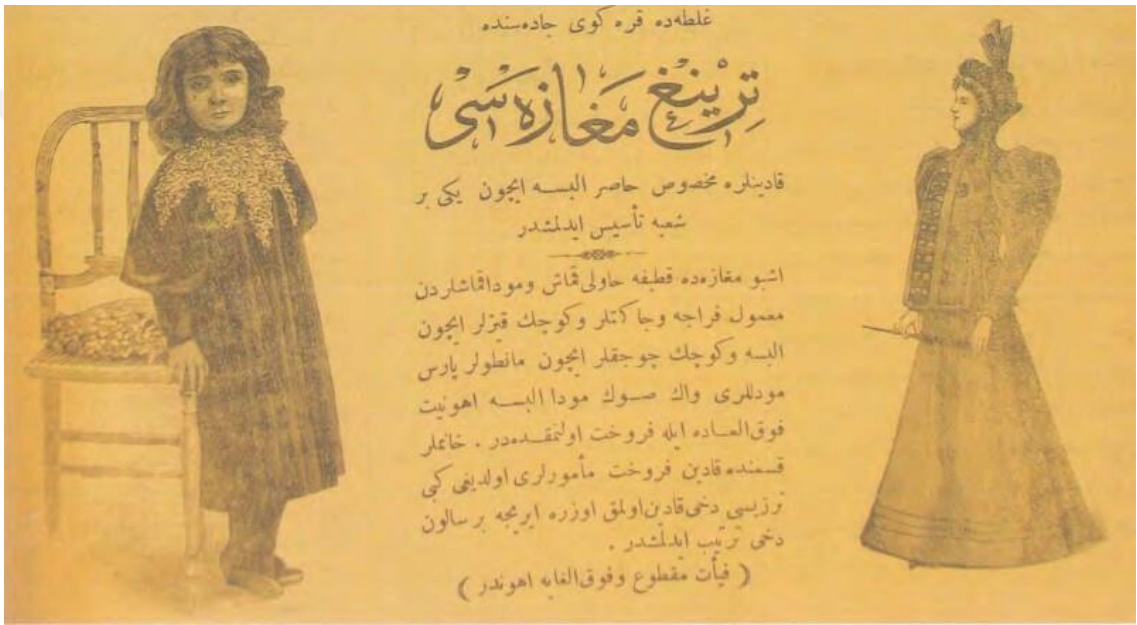 غلطه‌ده قره كوی جاده‌سنده
تِرْینْغ مَغَازَه‌سی
قادینلره مخصوص حاضر البسه ایچون یكی بر
شعبه تأسیس ایدلمشدر
اشبو مغازه‌ده قطیفه حاولی قماش ومودا قماشلردن
معمول فراجه وجاكتلر وكوچك قیزلر ایچون
البسه وكوچك چوجقلر ایچون مانطولر پارس
موده‌للری واك صوك مودا البسه اهونیت
فوق‌العاده ایله فروخت اولنمقده‌در . خانملر
قسمنده قادین فروخت مأمورلری اولدیغی كبی
ترزیسی دخی قادین اولمق اوزره ایریجه بر سالون
دخی ترتیب ایدلمشدر .
( فیأت مقطوع وفوق‌الغایه اهوندر )